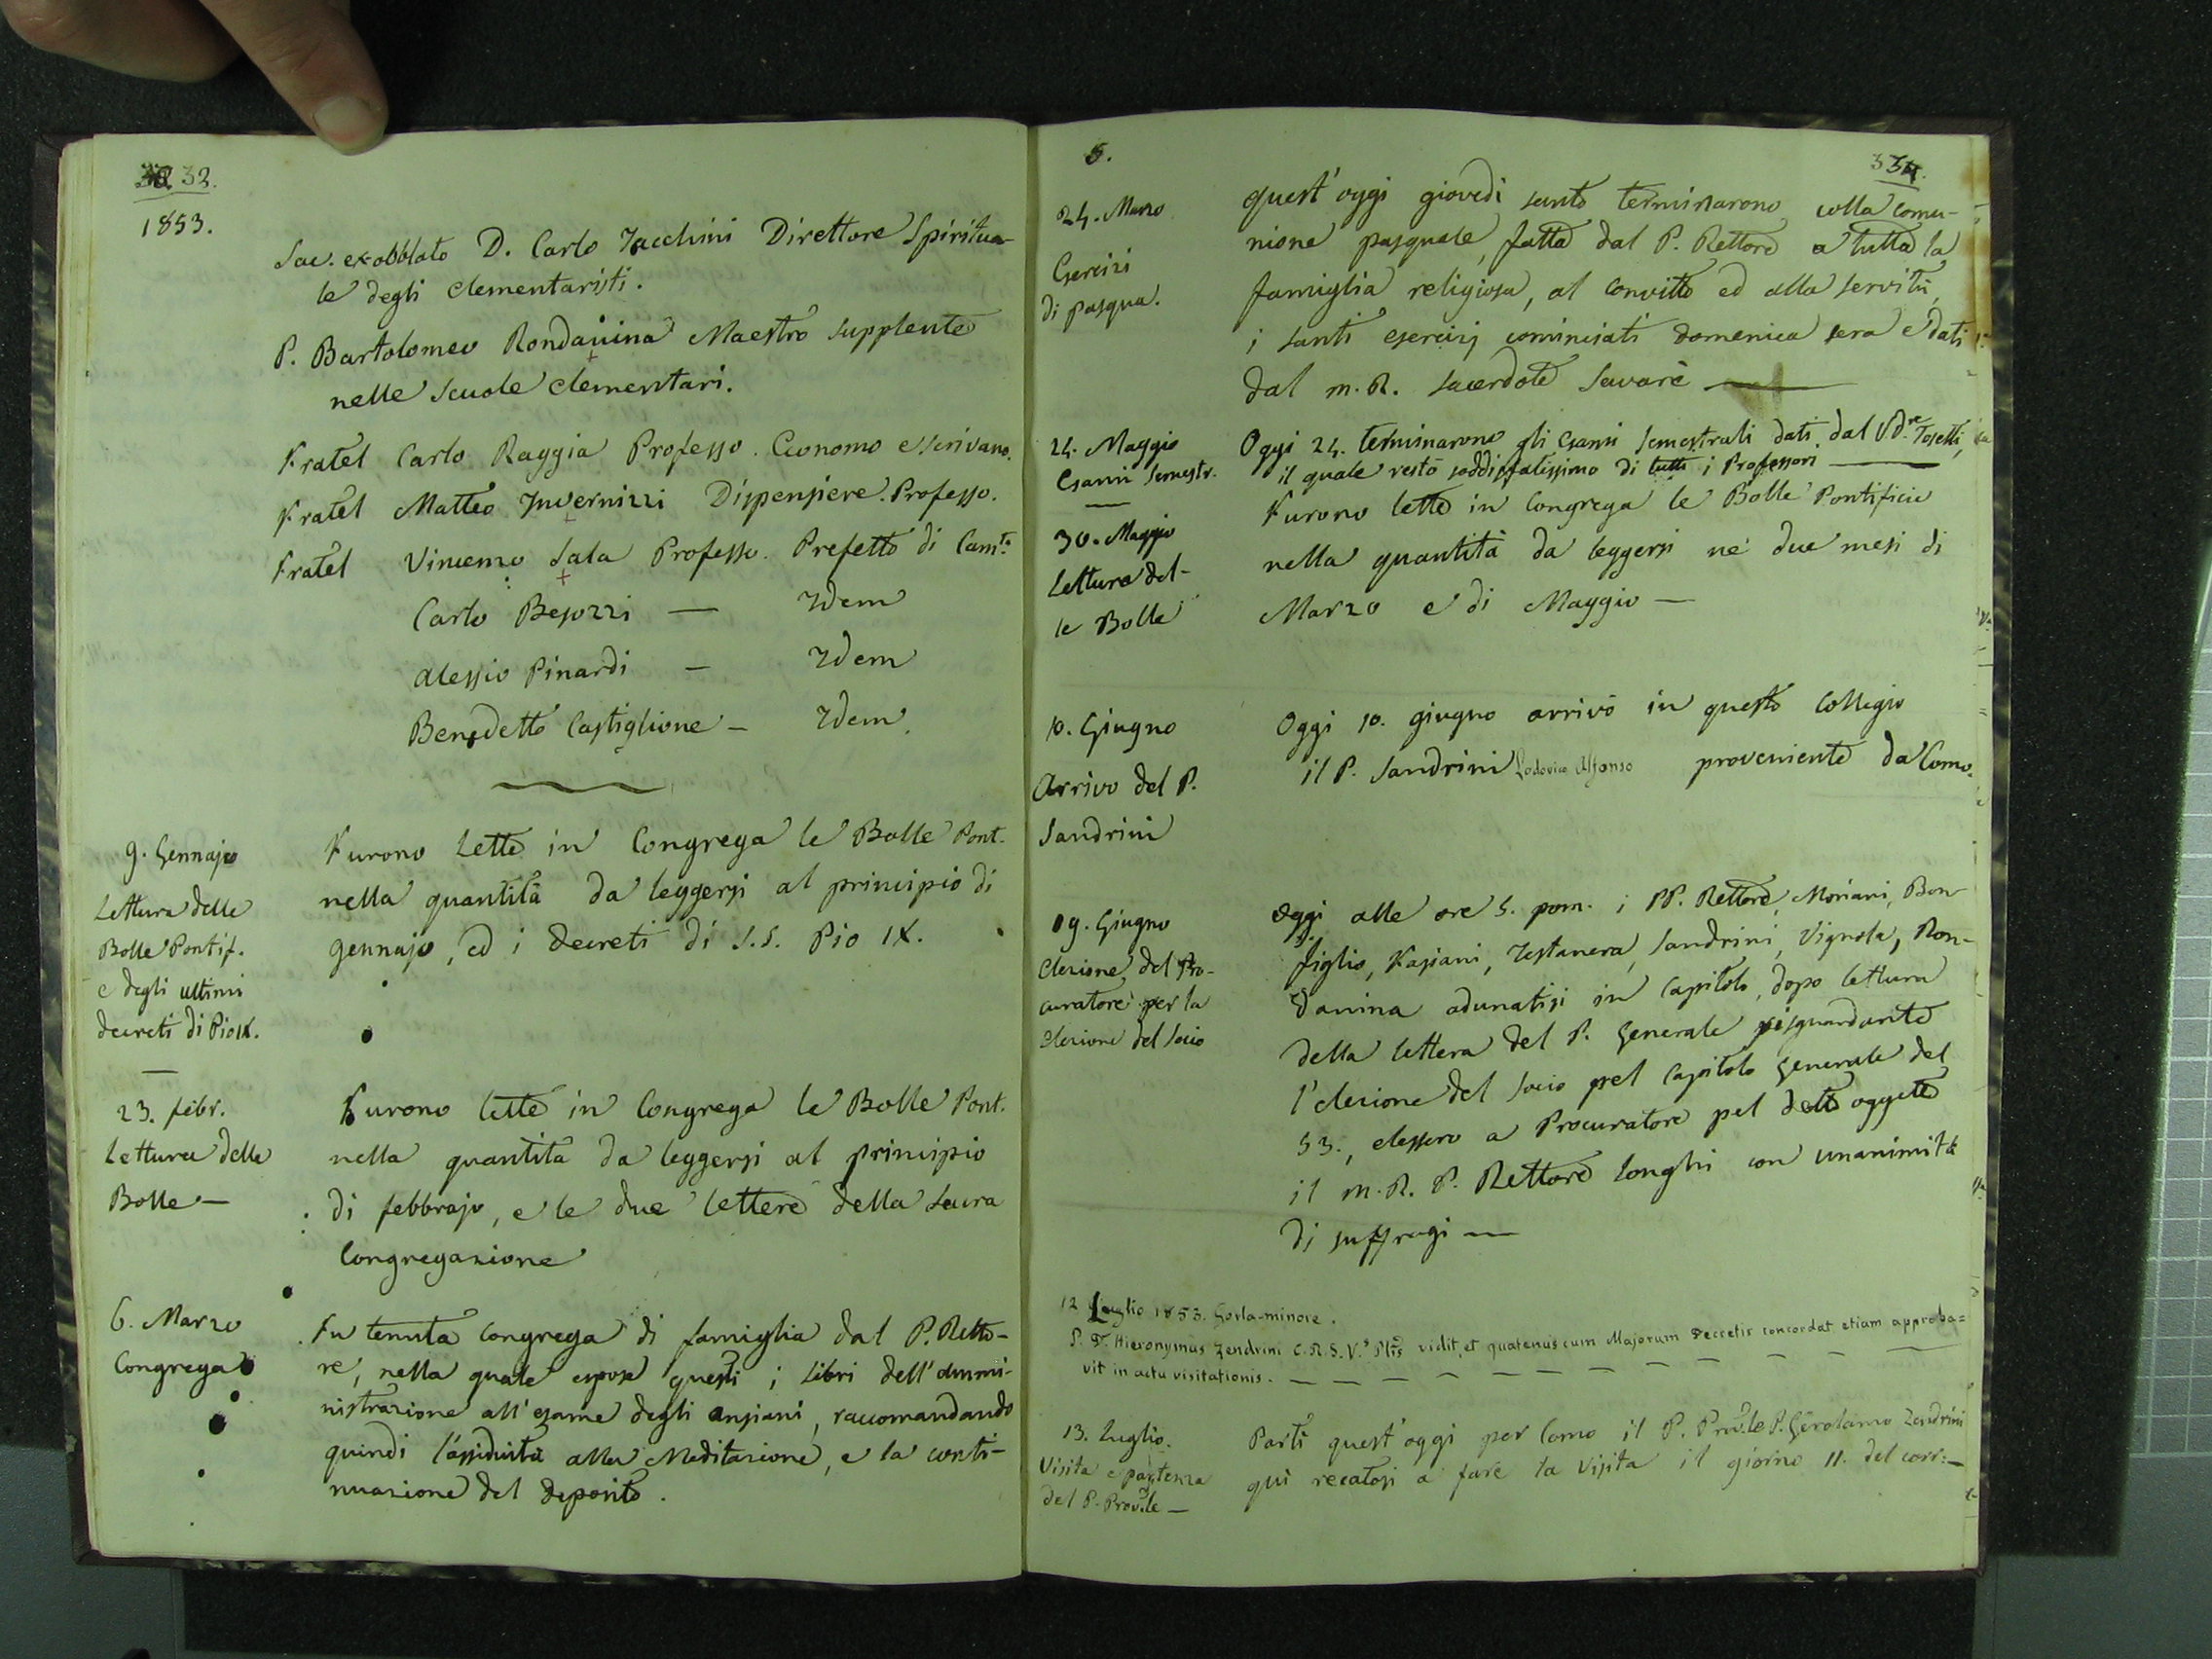 32.
1853.
Sac. ex-obblato D. Carlo Jacchini Direttore Spiritua-
le degli elementaristi.
P. Bartolomeo Rondanina Maestro supplente
nelle Scuole elementari.
Fratel Carlo Raggia Professo. Economo e scrivano.
Fratel Matteo Invernizzi Dispensiere. Professo.
Fratel Vincenzo Sala Professo. Prefetto di Camta.
Carlo Besozzi — Idem
Alessio Pinardi — Idem
Benedetto Castiglione — Idem.
9. Gennajo
Lettura delle
Bolle Pontif.
e degli ultimi
decreti di Pio IX.
Furono lette in Congrega le Bolle Pont.
nella quantità da leggersi al principio di
gennajo, ed i decreti di S.S. Pio IX.
23. febr.
Lettura delle
Bolle —
Furono lette in Congrega le Bolle Pont.
nella quantità da leggersi al principio
di febbrajo, e le due lettere della Sacra
Congregazione
6. Marzo
Congrega
Fu tenuta congrega di famiglia dal P. Retto-
re, nella quale espose questi i libri dell'ammi-
nistrazione all'esame degli anziani, raccomandando
quindi l'assiduità alla Meditazione, e la conti-
nuazione del deposito.
5.
24. Marzo
Esercizi
di pasqua.
quest'oggi giovedì santo terminarono colla comu-
nione pasquale, fatta dal P. Rettore a tutta la
famiglia religiosa, al convitto ed alla servitù,
i santi esercizj cominciati domenica sera e dati
dal m. R. sacerdote Savarè —
24. Maggio
Esami Semestr.
Oggi 24. terminarono gli esami semestrali dati dal Tosetti,
il quale restò soddisfatissimo di tutti i Professori —
30. Maggio
Lettura del-
le Bolle
Furono lette in Congrega le Bolle Pontificie
nella quantità da leggersi ne' due mesi di
Marzo e di Maggio —
10. Giugno
Arrivo del P.
Sandrini
Oggi 10. giugno arrivò in questo Collegio
il P. Sandrini Lodovico Alfonso proveniente da Como.
19. Giugno
Elezione del Pro-
curatore per la
elezione del Socio
Oggi alle ore 5. pom. i PP. Rettore, Moriani, Bon-
figlio, Fasiani, Testanera, Sandrini, Vignola, Ron-
danina adunatisi in Capitolo, dopo lettura
della lettera del P. Generale risguardante
l'elezione del socio pel Capitolo Generale del
53., elessero a Procuratore pel detto oggetto
il m. R. P. Rettore Longhi con unanimità
di suffragi —
12 Luglio 1853. Gorla-minore.
P. D. Hieronymus Zendrini C.R.S. vidit, et quatenus cum Majorum Decretis concordat, etiam approba=
vit in actu visitationis. —
13. Luglio.
Visita e partenza
del P. Prov.le —
Partì quest'oggi per Como il P. Prov.le P. Gerolamo Zendrini
quì recatosi a fare la visita il giorno 11. del corr: —